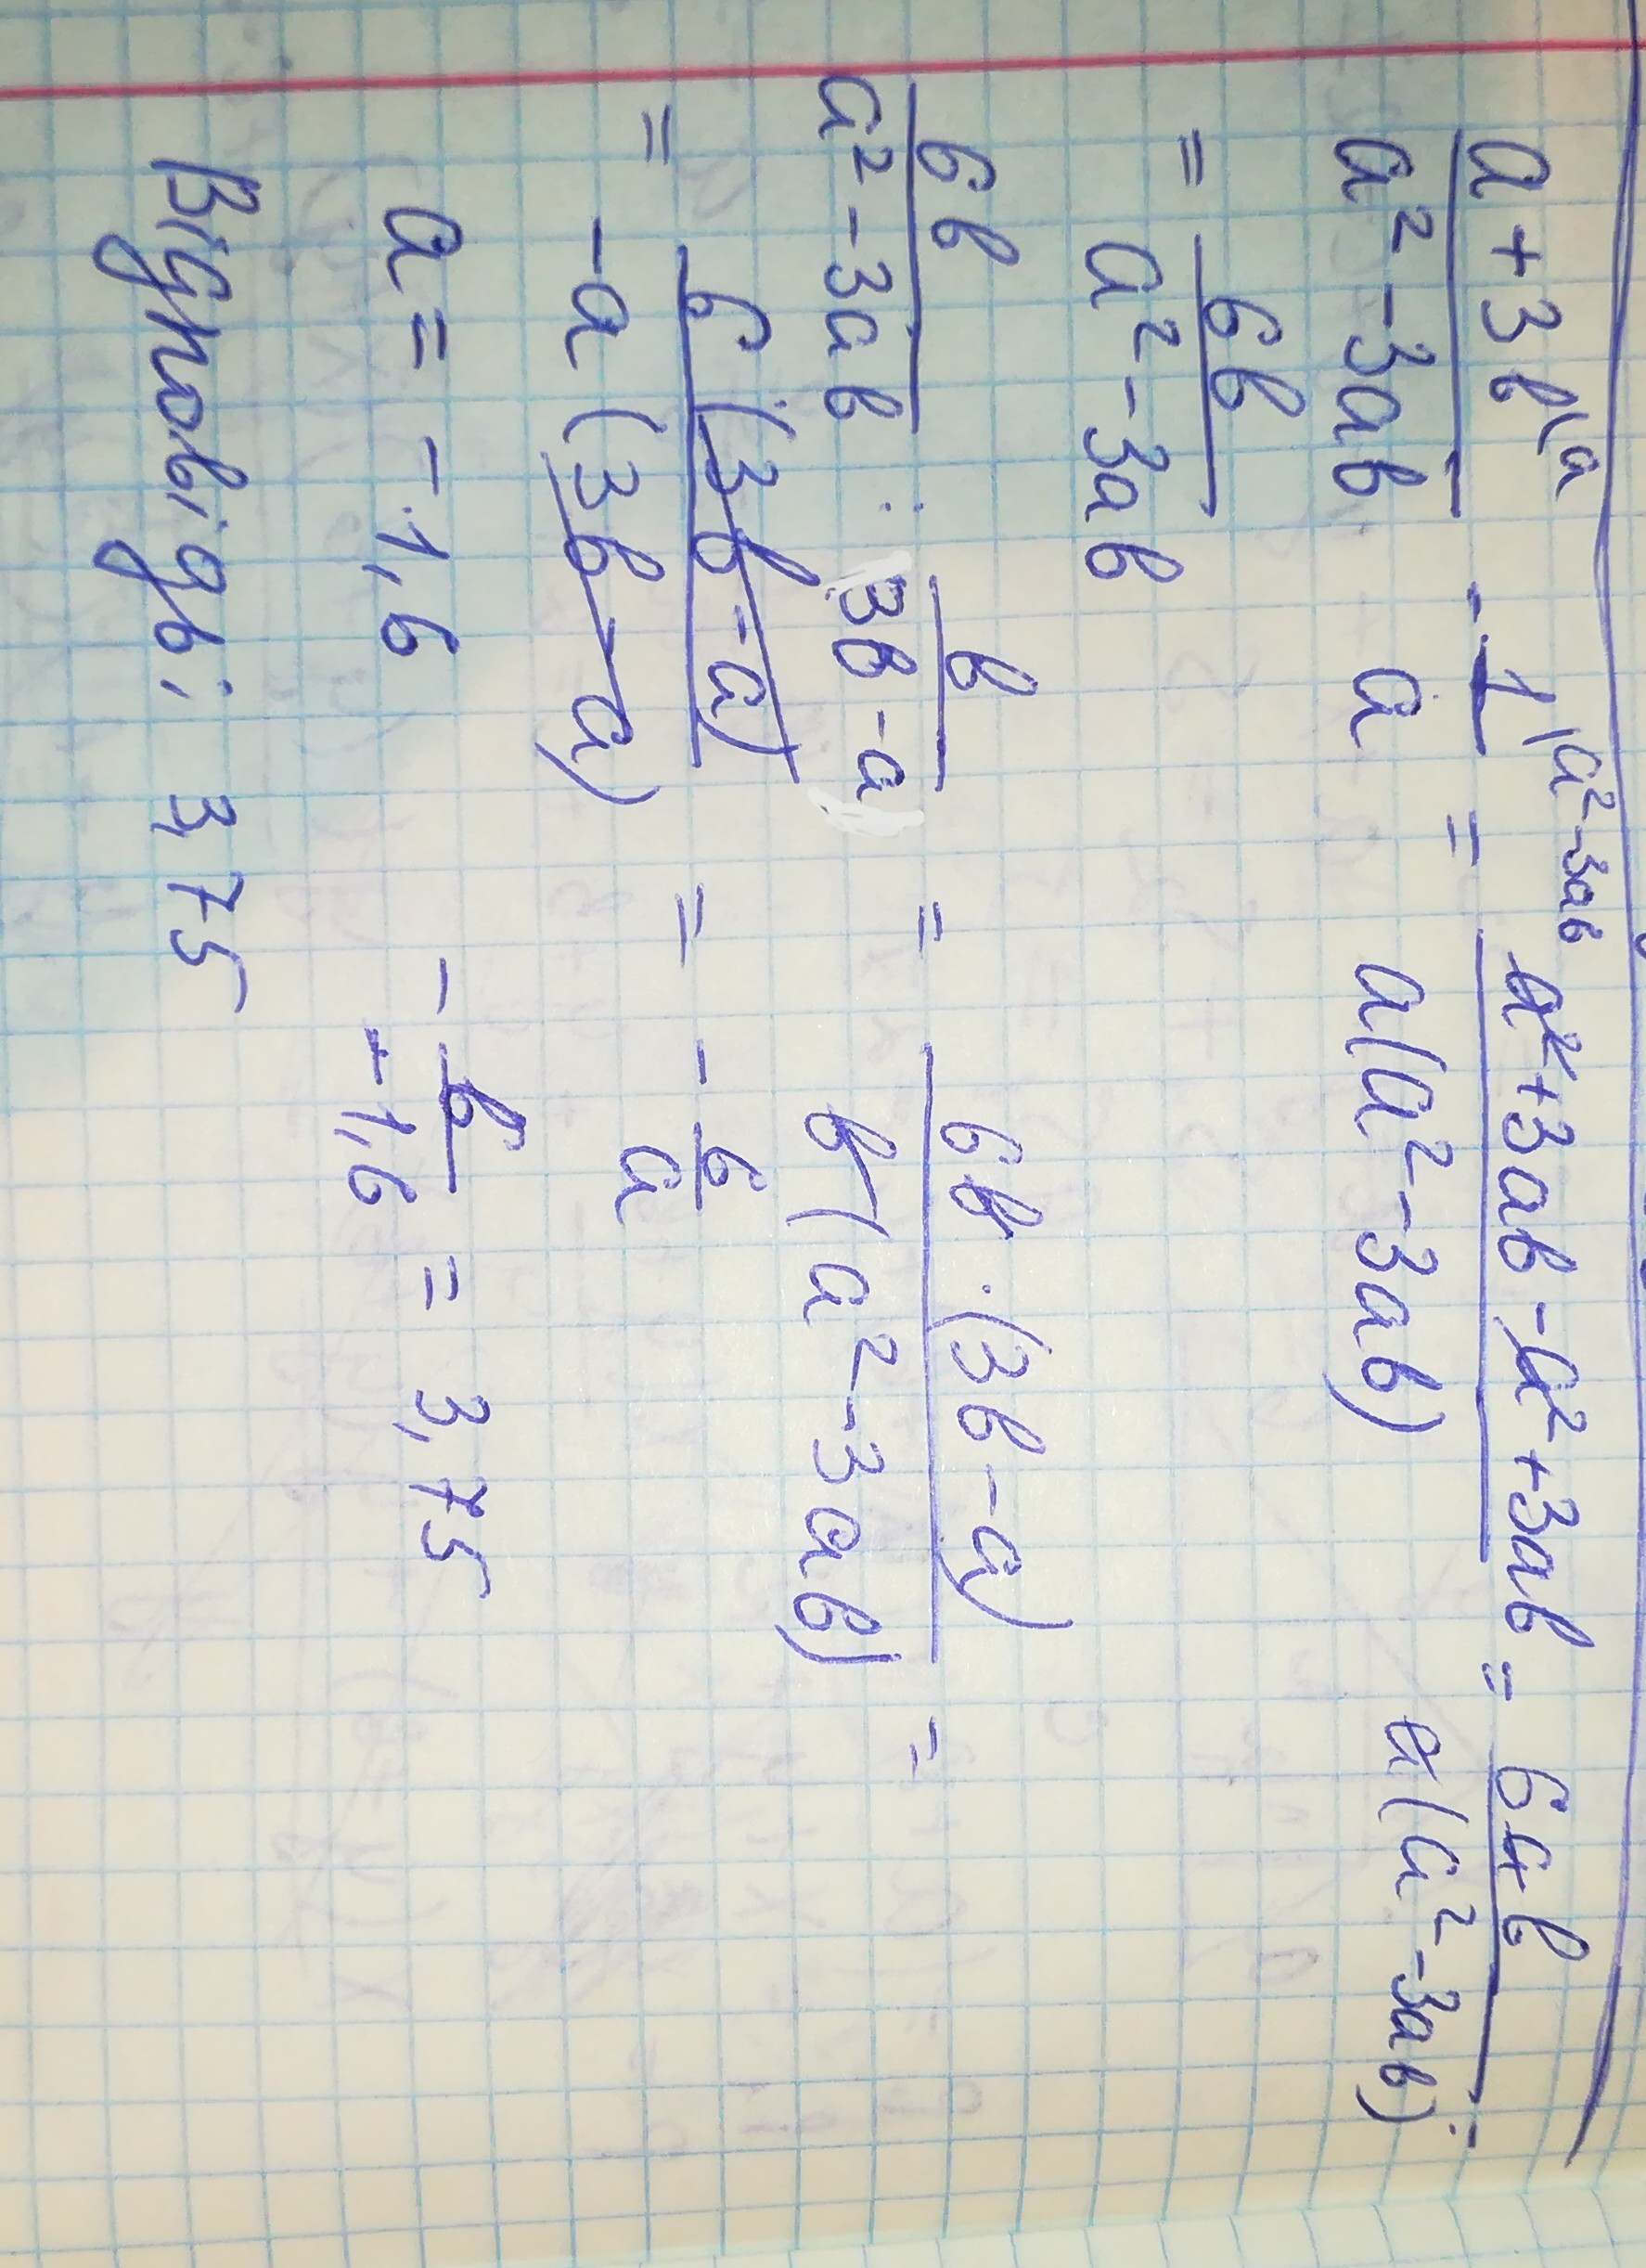 (a+3b)/(a²-3ab) \a - 1/a \a²-3ab = (a²+3ab-a²+3ab)/(a(a²-3ab)) = 6ab/(a(a²-3ab)) =
= 6b/(a²-3ab)
6b/(a²-3ab) : b/(3b-a) = 6b·(3b-a)/(b(a²-3ab)) =
= 6(3b-a)/(-a(3b-a)) = - 6/a
a = -1,6 - 6/(-1,6) = 3,75
Відповідь: 3,75